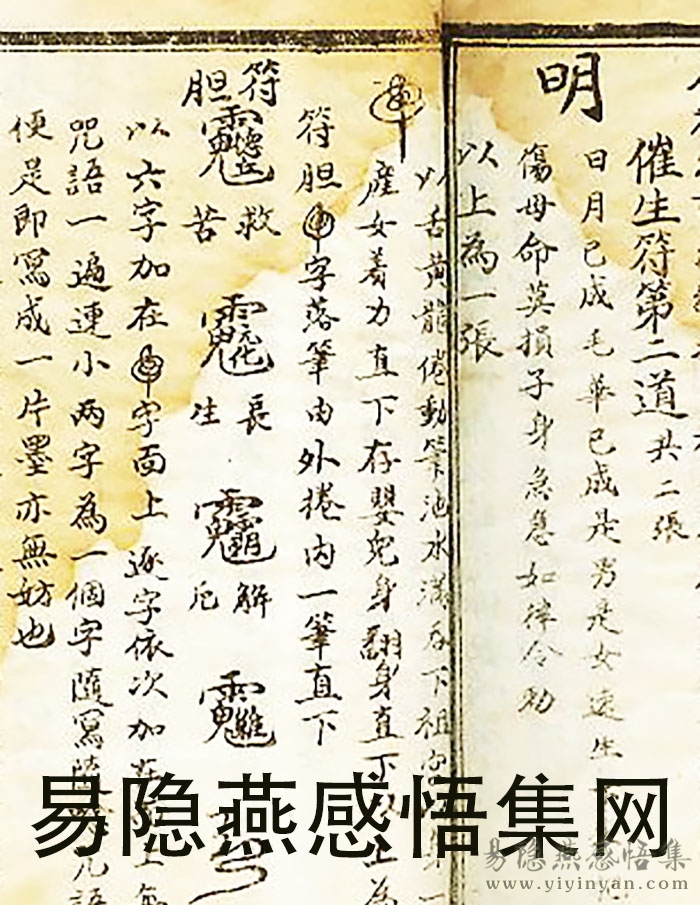 明
催生符第二道 共二張
日月已成毛華已成是男是女速生
傷母命莫損子身急急如律令勅
以上為一張
以舌黃龍倦動筆池水滿吞下祖
產女着力直下存嬰兒身翻身直下
符胆 字落筆由外捲内一筆直下
符胆
救 長 解
苦 生 厄
以六字加在 字面上逐字依次加在
咒語一遍連小两字為一個字隨寫隨
便是即寫成一片墨亦無妨也
易隐燕感悟集网
易隐燕感悟集
www.yiyinyan.com